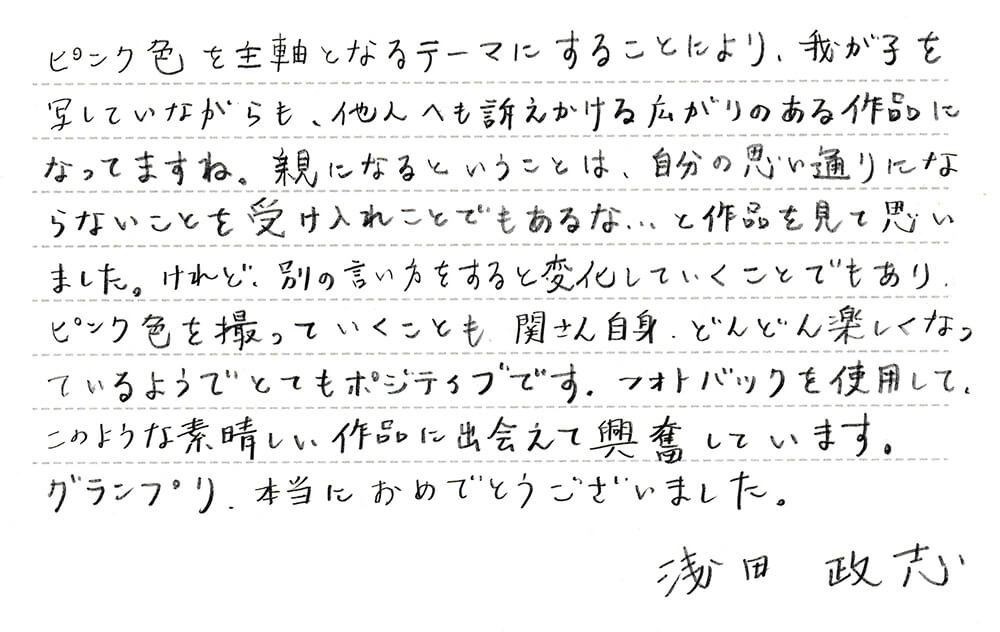 ピンク色を主軸となるテーマにすることにより、我が子を
写していながらも、他人へも訴えかける広がりのある作品に
なってますね。親になるということは、自分の思い通りにな
らないことを受け入れことでもあるな…と作品を見て思い
ました。けれど、別の言い方をすると変化していくことでもあり、
ピンク色を撮っていくことも、関さん自身、どんどん楽しくなっ
ているようでとてもポジティブです。フォトバックを使用して、
このような素晴しい作品に出会えて興奮しています。
グランプリ、本当におめでとうございました。
浅田 政志